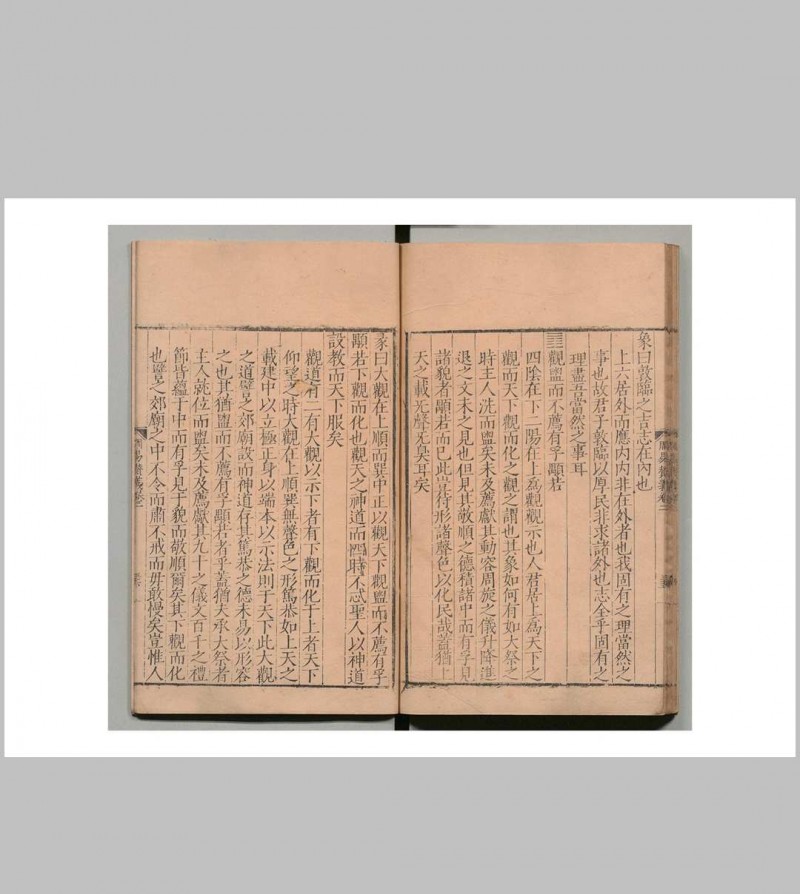 象曰敦臨之吉志在內也
上六居外而應內內非在外者也我固有之理當然之
事也故君子敦臨以厚民非求諸外也志全乎固有之
理盡吾當然之事耳
䷓觀盥而不薦有孚顒若
四陰在下二陽在上為觀觀示也人君居上為天下之
觀而天下觀而化之之謂也其象如何有如大祭之
時主人洗而盥矣未及薦獻其動容周旋之儀升降進
退之文未之見也但見其敬順之德積諸中而有孚見
諸貌者顒若而已此豈待形諸聲色以化民哉蓋猶上
天之載无聲无臭耳矣
彖曰大觀在上順而巽中正以觀天下觀盥而不薦有孚
顒若下觀而化也觀天之神道而四時不忒聖人以神道
設教而天下服矣
觀道有二有大觀以示下者有下觀而化于上者天下
仰望之時大觀在上順巽無聲色之形篤恭如上天之
載建中以立極正身以端本以示法則于天下此大觀
之道譬之郊廟設而神道存其篤恭之德未易以形容
之也其猶盥而不薦有孚顒若者乎蓋猶天承大祭者
主人就位而盥矣未及薦獻其九十之儀文百千之禮
節皆蘊于中而有孚見于貌而敬順爾矣其下觀而化
也譬之郊廟之中不令而肅不戒而毋敢慢矣豈惟人